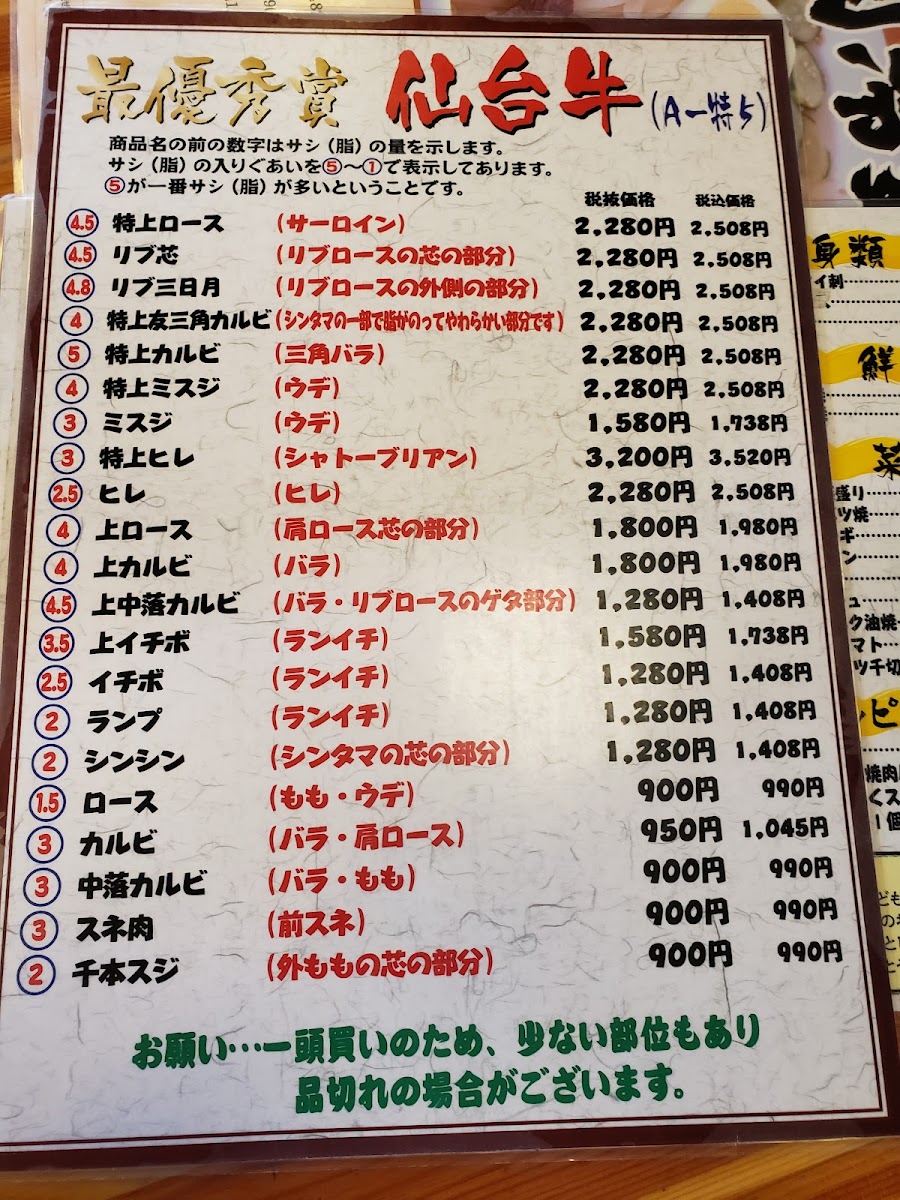 最優秀賞 仙台牛 (A-特5)
商品名の前の数字はサシ(脂)の量を示します。
サシ(脂)の入りぐあいを⑤〜①で表示してあります。
⑤が一番サシ(脂)が多いということです。
税抜価格 税込価格
4.5 特上ロース (サーロイン) 2,280円 2,508円
4.5 リブ芯 (リブロースの芯の部分) 2,280円 2,508円
4.8 リブ三日月 (リブロースの外側の部分) 2,280円 2,508円
4 特上友三角カルビ (シンタマの一部で脂がのってやわらかい部分です) 2,280円 2,508円
5 特上カルビ (三角バラ) 2,280円 2,508円
4 特上ミスジ (ウデ) 2,280円 2,508円
3 ミスジ (ウデ) 1,580円 1,738円
3 特上ヒレ (シャトーブリアン) 3,200円 3,520円
2.5 ヒレ (ヒレ) 2,280円 2,508円
4 上ロース (肩ロース芯の部分) 1,800円 1,980円
4 上カルビ (バラ) 1,800円 1,980円
4.5 上中落カルビ (バラ・リブロースのゲタ部分) 1,280円 1,408円
3.5 上イチボ (ランイチ) 1,580円 1,738円
2.5 イチボ (ランイチ) 1,280円 1,408円
2 ランプ (ランイチ) 1,280円 1,408円
2 シンシン (シンタマの芯の部分) 1,280円 1,408円
1.5 ロース (もも・ウデ) 900円 990円
3 カルビ (バラ・肩ロース) 950円 1,045円
3 中落カルビ (バラ・もも) 900円 990円
3 スネ肉 (前スネ) 900円 990円
2 千本スジ (外ももの芯の部分) 900円 990円
お願い…一頭買いのため、少ない部位もあり
品切れの場合がございます。
身類
イ刺
鮮
菜
盛り
ツ焼
ギ
ン
ュ
ク油焼
マト
ツ千切
ピ
焼肉
くス
1個